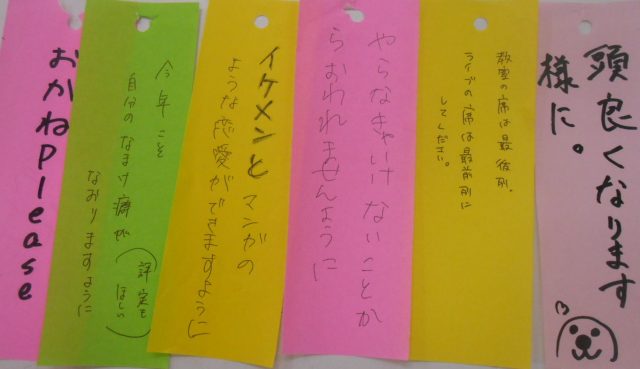 頭良くなります
様に。
教室の席は最後列、
ライブの席は最前列に
してください。
やらなきゃいけないことか
らおわれませんように
イケメンとマンガの
ような恋愛ができますように
今年こそ
自分のなまけ癖が
なおりますように
(評定も
ほしい)
おかねPlease